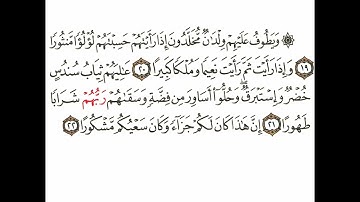 ۞ وَيَطُوفُ عَلَيْهِمْ وِلْدَٰنٌ مُّخَلَّدُونَ إِذَا رَأَيْتَهُمْ حَسِبْتَهُمْ لُؤْلُؤًا مَّنثُورًا
﴿١٩﴾ وَإِذَا رَأَيْتَ ثَمَّ رَأَيْتَ نَعِيمًا وَمُلْكًا كَبِيرًا ﴿٢٠﴾ عَٰلِيَهُمْ ثِيَابُ سُندُسٍ
خُضْرٌ وَإِسْتَبْرَقٌ ۖ وَحُلُّوٓا۟ أَسَاوِرَ مِن فِضَّةٍ وَسَقَىٰهُمْ رَبُّهُمْ شَرَابًا
طَهُورًا ﴿٢١﴾ إِنَّ هَٰذَا كَانَ لَكُمْ جَزَآءً وَكَانَ سَعْيُكُم مَّشْكُورًا ﴿٢٢﴾